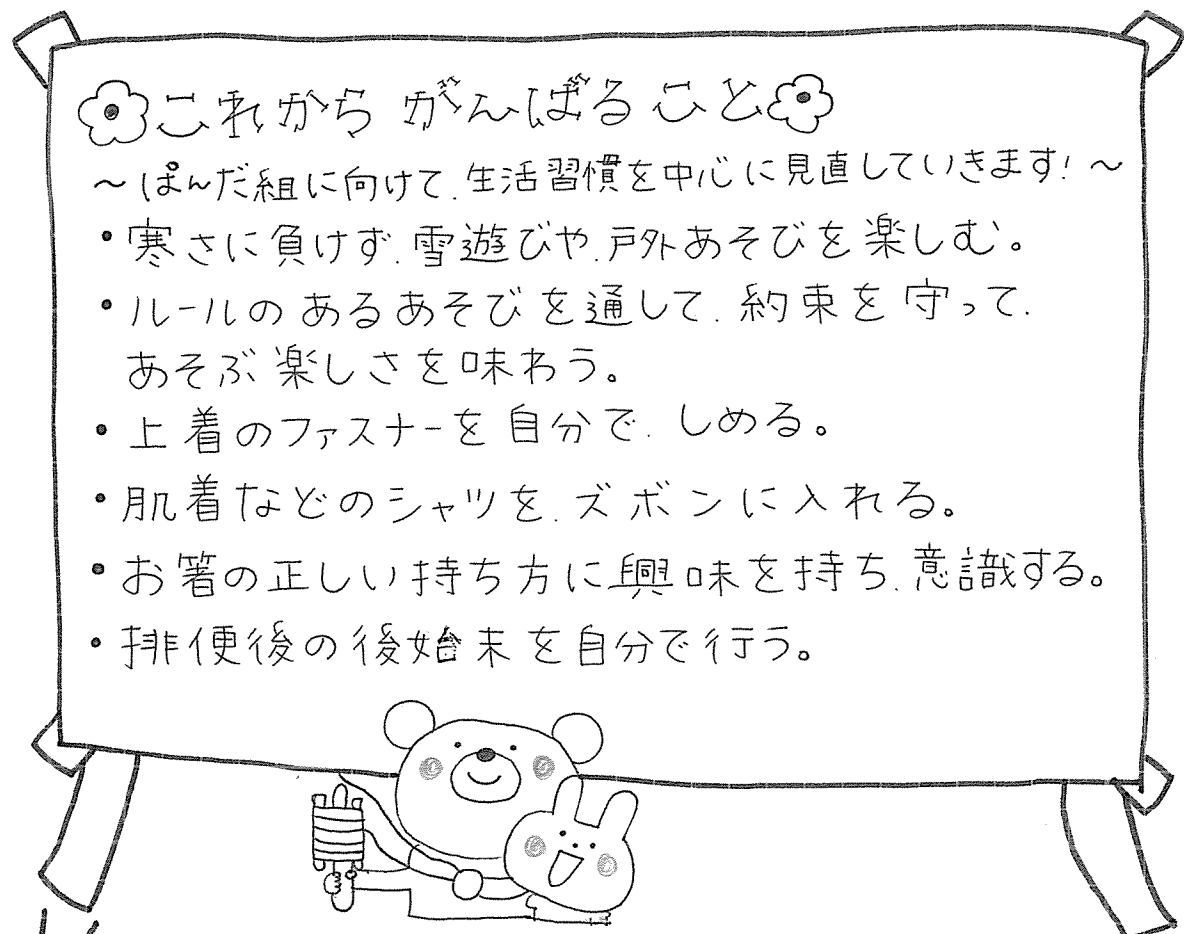 これから がんばること
～ぱんだ組に向けて、生活習慣を中心に見直していきます！～
・寒さに負けず、雪遊びや、戸外あそびを楽しむ。
・ルールのあるあそびを通して、約束を守って、
あそぶ楽しさを味わう。
・上着のファスナーを自分で、しめる。
・肌着などのシャツを、ズボンに入れる。
・お箸の正しい持ち方に興味を持ち、意識する。
・排便後の後始末を自分で行う。